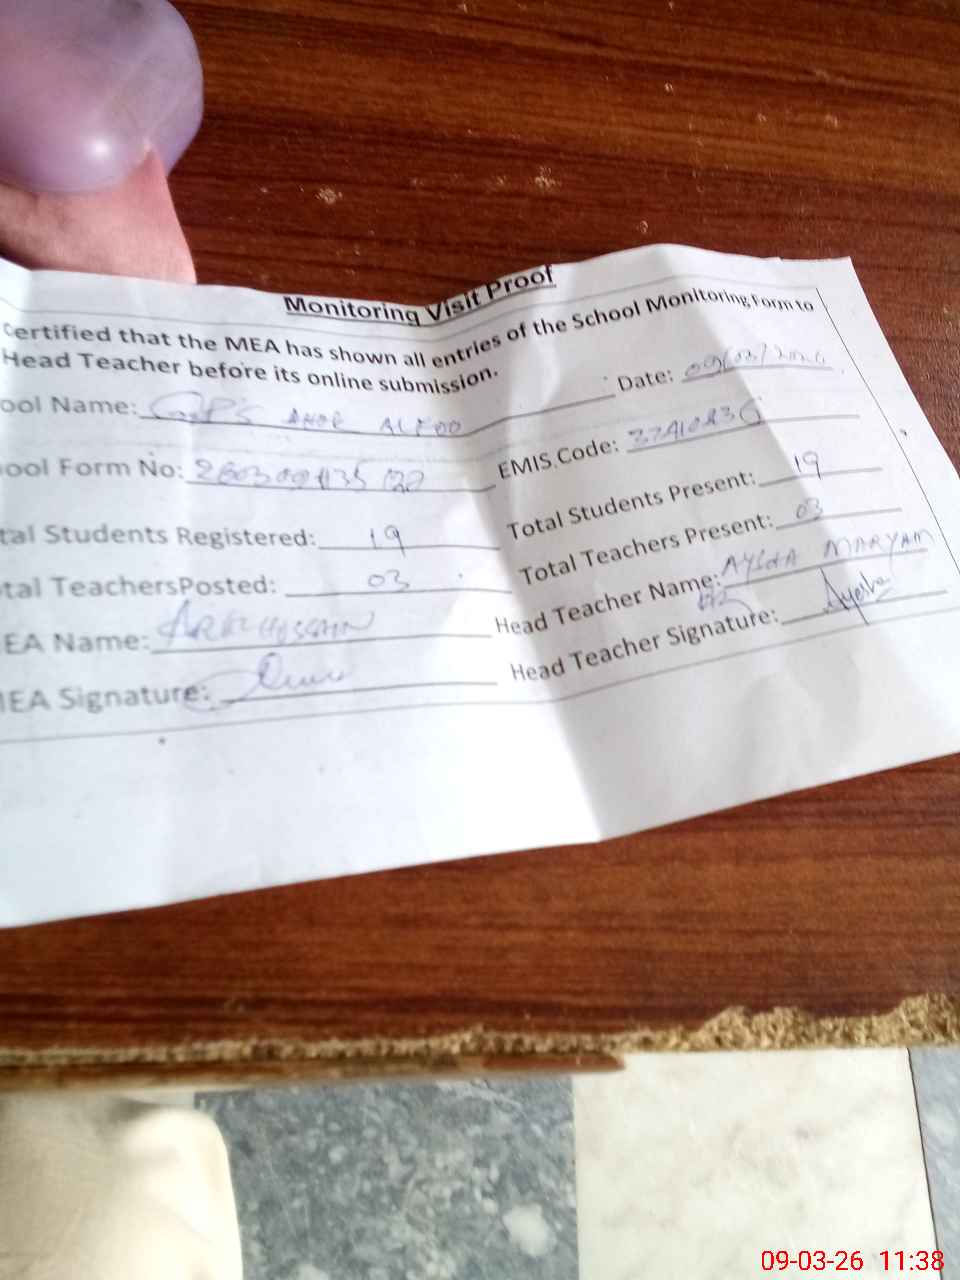 Monitoring Visit Proof
Certified that the MEA has shown all entries of the School Monitoring Form to
Head Teacher before its online submission.
Date: 09/03/2026
ool Name: GPS
EMIS Code: 37410236
ool Form No:
Total Students Present: 19
tal Students Registered: 19
Total Teachers Present: 03
tal TeachersPosted: 03
Head Teacher Name: AYSHA MARYAM
EA Name: HUSSAIN
Head Teacher Signature: Ayesha
MEA Signature:
09-03-26 11:38